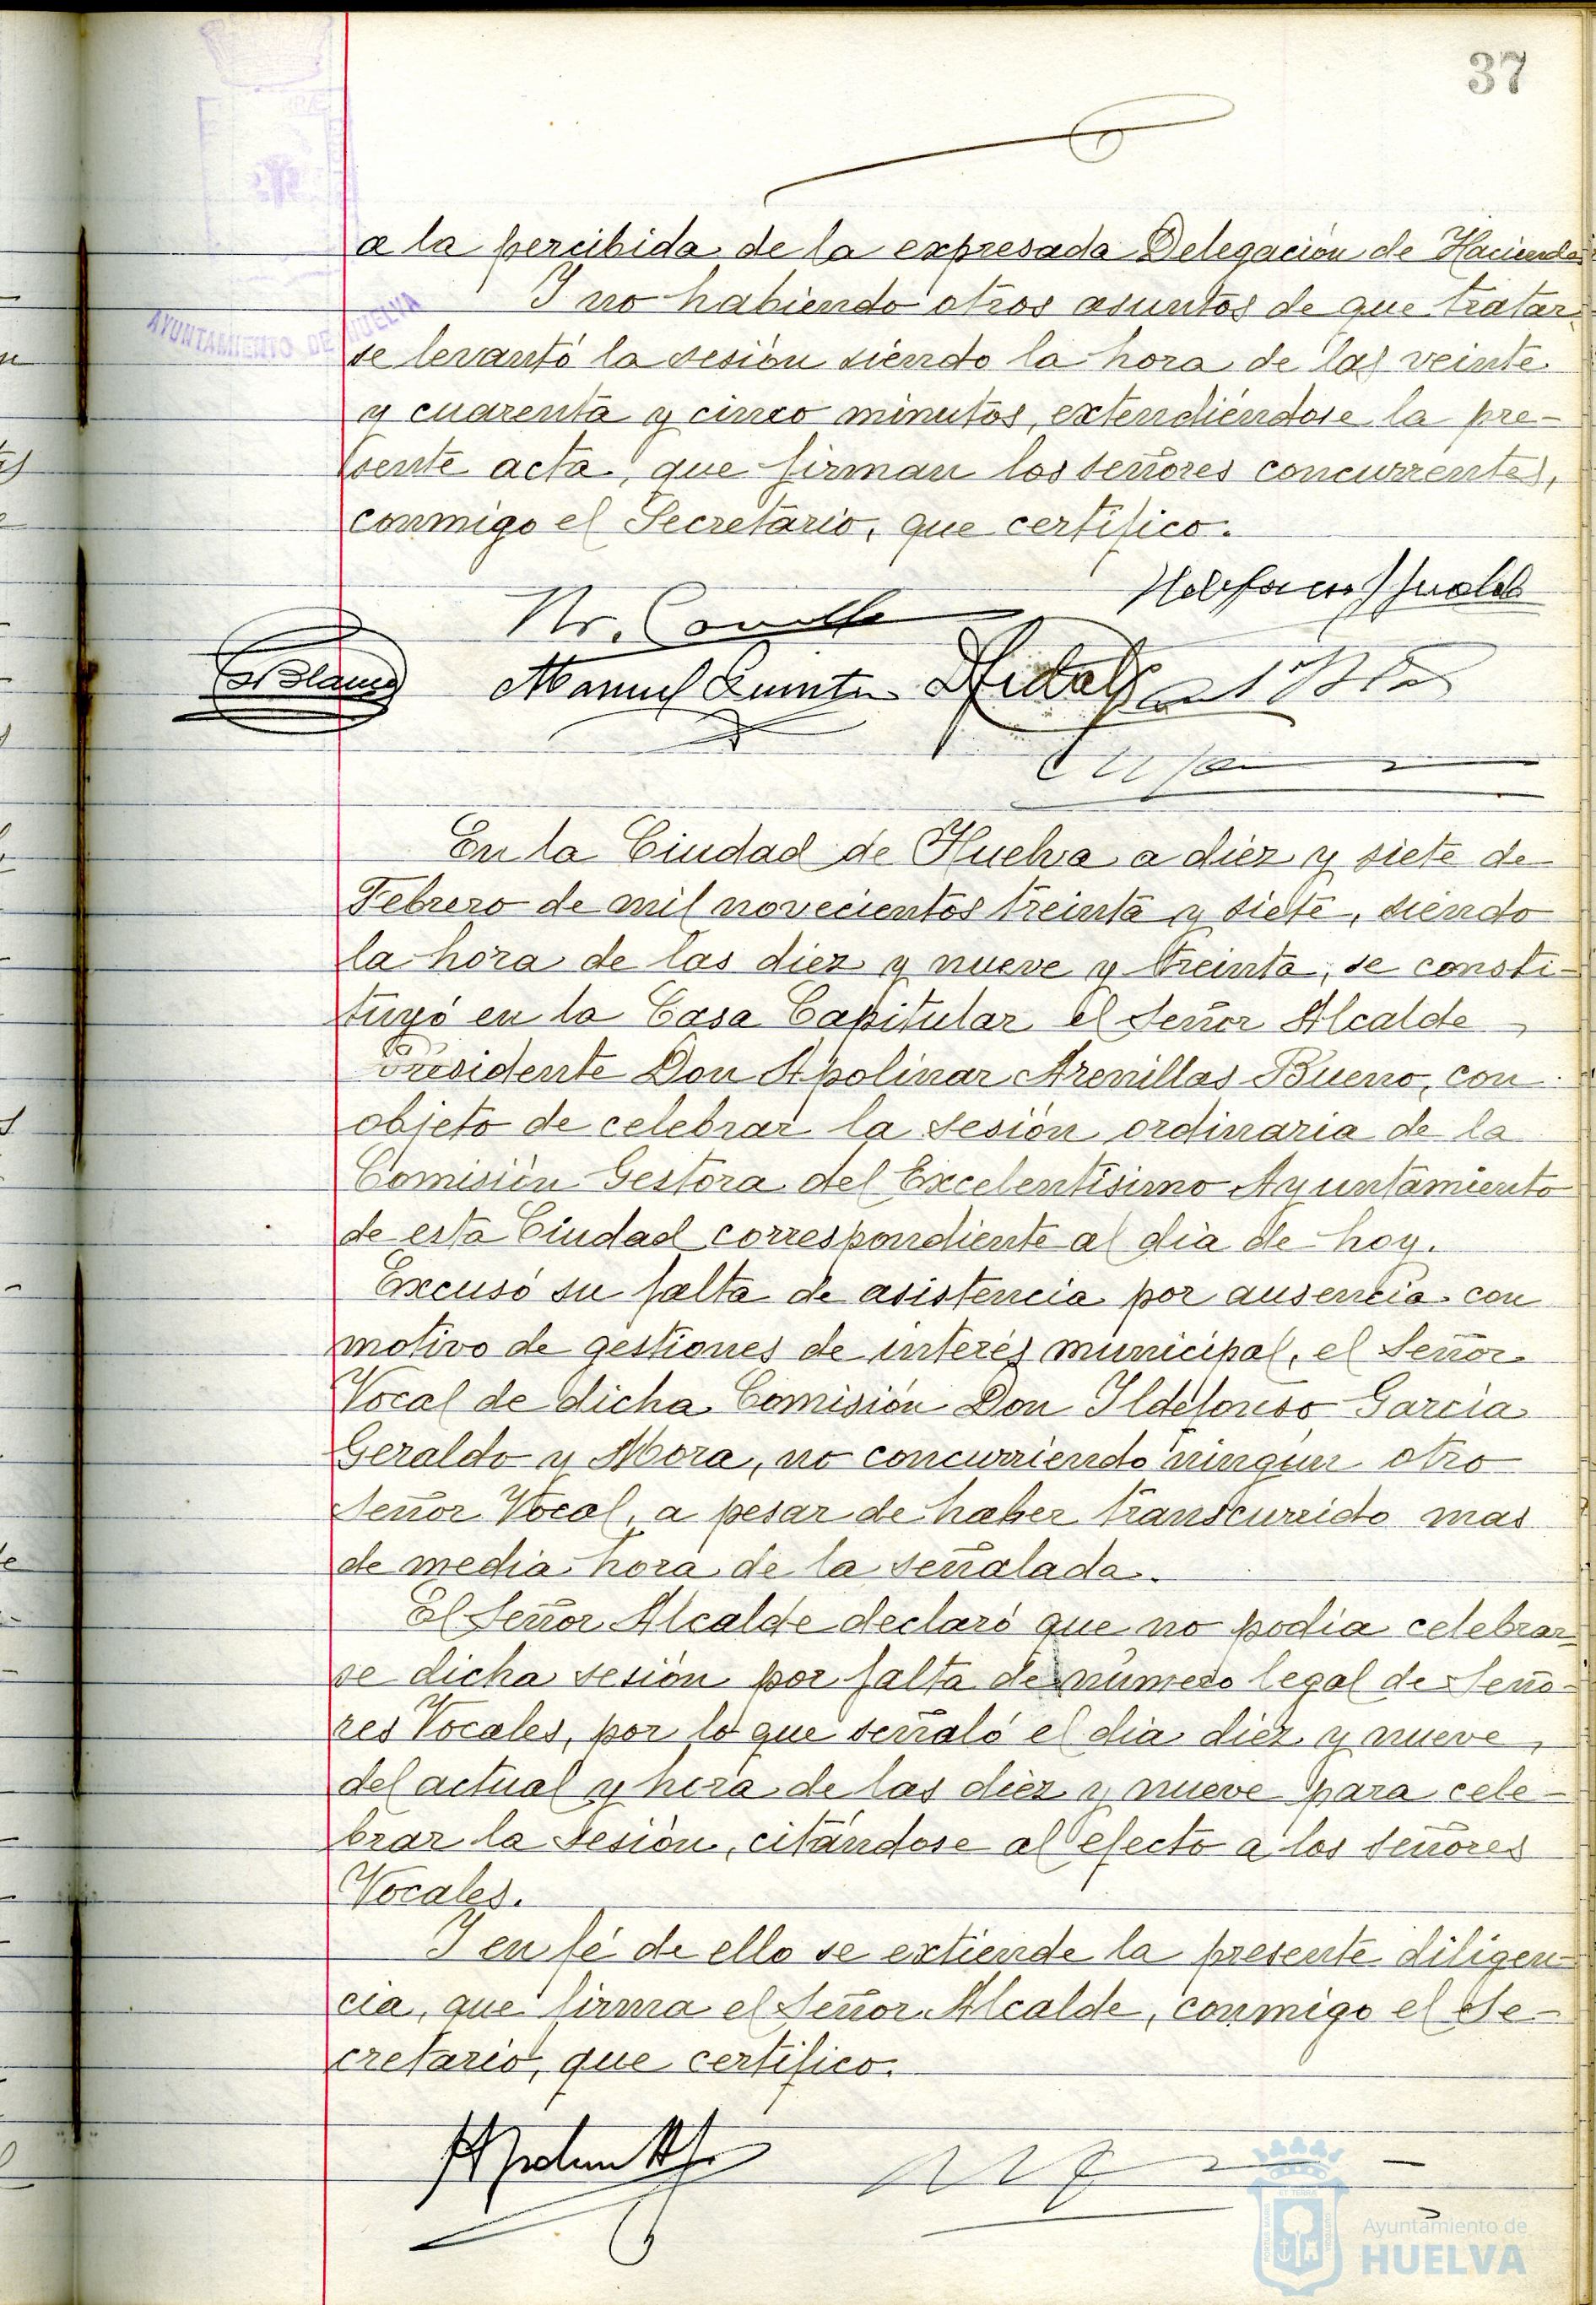 37
a la percibida de la expresada Delegación de Hacienda
Y no habiendo otros asuntos de que tratar
se levantó la sesión siendo la hora de las veinte
y cuarenta y cinco minutos, extendiéndose la pre-
sente acta, que firman los señores concurrentes,
conmigo el Secretario, que certifico.
AYUNTAMIENTO DE HUELVA
Manuel Quinta
En la Ciudad de Huelva a diez y siete de
Febrero de mil novecientos treinta y siete, siendo
la hora de las diez y nueve y treinta, se consti-
tuyó en la Casa Capitular el Señor Alcalde
Presidente Don Apolinar Arenillas Bueno, con
objeto de celebrar la sesión ordinaria de la
Comisión Gestora del Excelentísimo Ayuntamiento
de esta Ciudad correspondiente al día de hoy.
Excusó su falta de asistencia por ausencia con
motivo de gestiones de interés municipal, el Señor
Vocal de dicha Comisión Don Ildefonso García
Geraldo y Mora, no concurriendo ningún otro
señor Vocal, a pesar de haber transcurrido mas
de media hora de la señalada.
El Señor Alcalde declaró que no podía celebrar-
se dicha sesión por falta de número legal de Seño-
res Vocales, por lo que señaló el día diez y nueve
del actual y hora de las diez y nueve para cele-
brar la sesión, citándose al efecto a los señores
Vocales.
Y en fé de ello se extiende la presente diligen-
cia, que firma el Señor Alcalde, conmigo el Se-
cretario, que certifico.
Ayuntamiento de
HUELVA